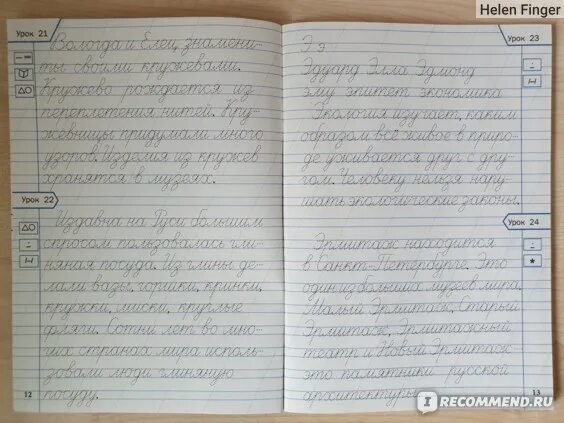 Helen Finger
Урок 21
Вологда и Елец знамени-
ты своими кружевами.
Кружево рождается из
переплетения нитей. Кру-
жевницы придумали много
узоров. Изделия из кружев
хранятся в музеях.
Урок 22
Издавна на Руси большим
спросом пользовалась гли-
няная посуда. Из глины де-
лали вазы, горшки, кринки,
кружки, миски, круглые
фляги. Сотни лет во мно-
гих странах мира исполь-
зовали люди глиняную
посуду.
12
Урок 23
Э э
Эдуард Элла Эдмонд
эму эпитет экономика
Экология изучает, каким
образом всё живое в приро-
де уживается друг с дру-
гом. Человеку нельзя нару-
шать экологические законы.
Урок 24
Эрмитаж находится
в Санкт-Петербурге. Это
один из больших музеев мира.
Малый Эрмитаж, Старый
Эрмитаж, Эрмитажный
театр и Новый Эрмитаж -
это памятники русской
архитектуры.
13
IRECOMMEND.RU